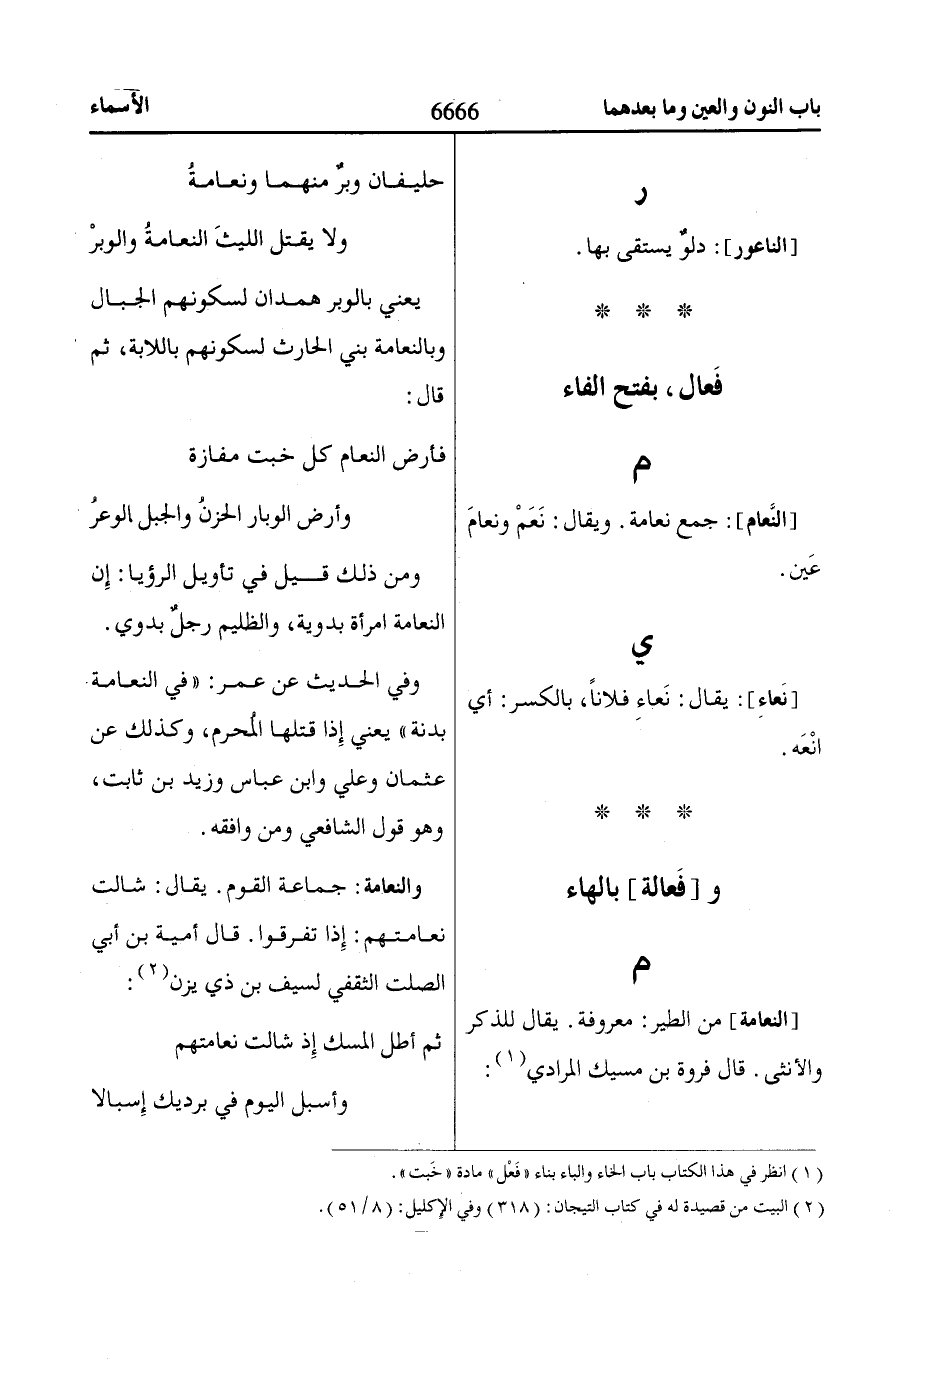 باب النون والعين وما بعدهما 6666 الأسماء
ر
[الناعور]: دلوٌ يستقى بها.
* * *
فَعال، بفتح الفاء
م
[النَّعام]: جمع نعامة. ويقال: نَعَمْ ونعامَ
عَين.
ي
[نَعاءِ]: يقال: نَعاءِ فلاناً، بالكسر: أي
انْعَه.
* * *
و [فَعالة] بالهاء
م
[النعامة] من الطير: معروفة. يقال للذكر
والأنثى. قال فروة بن مسيك المرادي(١):
حليفان وبرٌ منهما ونعامةُ
ولا يقتل الليثَ النعامةُ والوبرْ
يعني بالوبر همدان لسكونهم الجبال
وبالنعامة بني الحارث لسكونهم باللابة، ثم
قال:
فأرض النعام كل خبت مفازة
وأرض الوبار الحزنُ والجبل الوعرُ
ومن ذلك قيل في تأويل الرؤيا: إن
النعامة امرأة بدوية، والظليم رجلٌ بدوي.
وفي الحديث عن عمر: «في النعامة
بدنة» يعني إذا قتلها المُحرم، وكذلك عن
عثمان وعلي وابن عباس وزيد بن ثابت،
وهو قول الشافعي ومن وافقه.
والنعامة: جماعة القوم. يقال: شالت
نعامتهم: إذا تفرقوا. قال أمية بن أبي
الصلت الثقفي لسيف بن ذي يزن(٢):
ثم أطل المسك إذ شالت نعامتهم
وأسبل اليوم في برديك إسبالا
(١) انظر في هذا الكتاب باب الخاء والباء بناء «فَعْل» مادة «خَبت».
(٢) البيت من قصيدة له في كتاب التيجان: (٣١٨) وفي الإكليل: (٨/٥١).